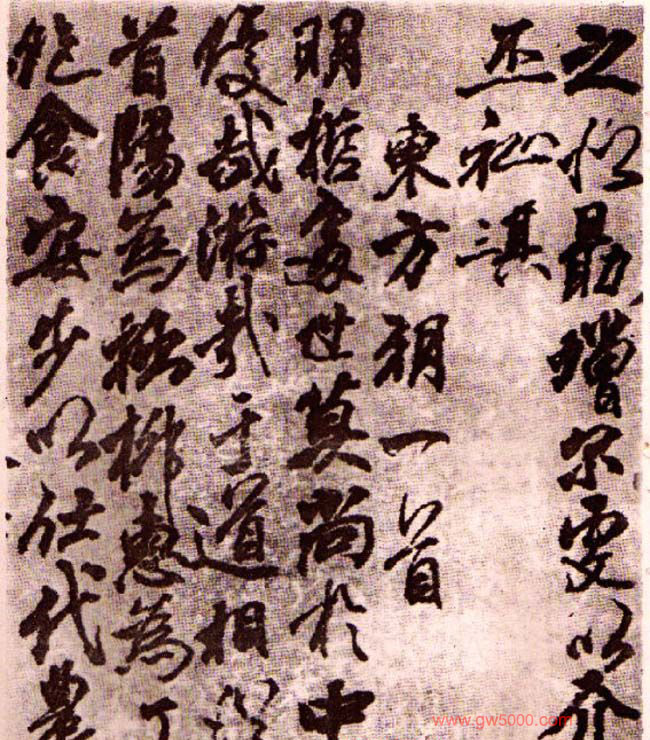 之 勖增尔 以介
丕祉淇
東方朔一首
明哲處世莫尚於中
優哉游哉于道相從
首陽為拙柳惠為工
飽食安步以仕代農
www.gw5000.com